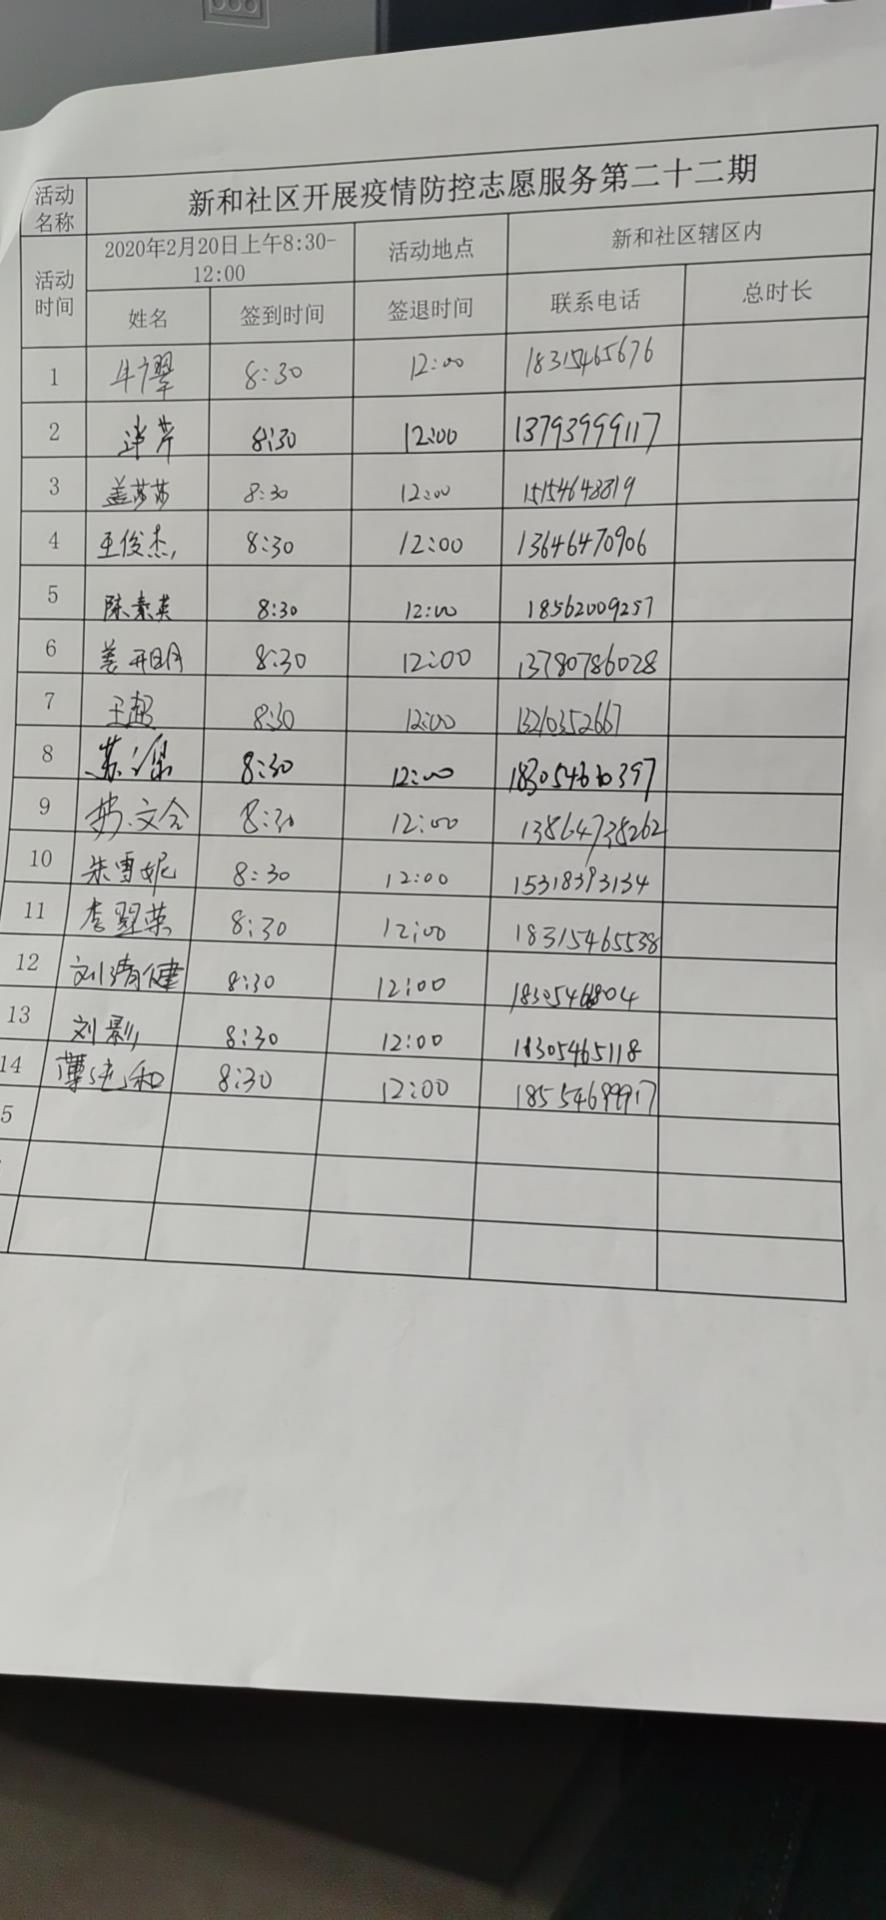 活动名称 新和社区开展疫情防控志愿服务第二十二期
活动时间 2020年2月20日上午8:30-12:00 活动地点 新和社区辖区内
姓名 签到时间 签退时间 联系电话 总时长
1 8:30 12:00 18315465676
2 8:30 12:00 13793999117
3 盖莎莎 8:30 12:00 15154643819
4 王俊杰 8:30 12:00 13646470906
5 陈素英 8:30 12:00 18562009257
6 姜开明 8:30 12:00 13780786028
7 王超 8:30 12:00 13210352667
8 8:30 12:00
9 8:30 12:00 13864738262
10 朱雪妮 8:30 12:00 15318393134
11 李翠荣 8:30 12:00 18315465538
12 刘清健 8:30 12:00
13 刘影 8:30 12:00 18305465118
14 薄纯和 8:30 12:00
5